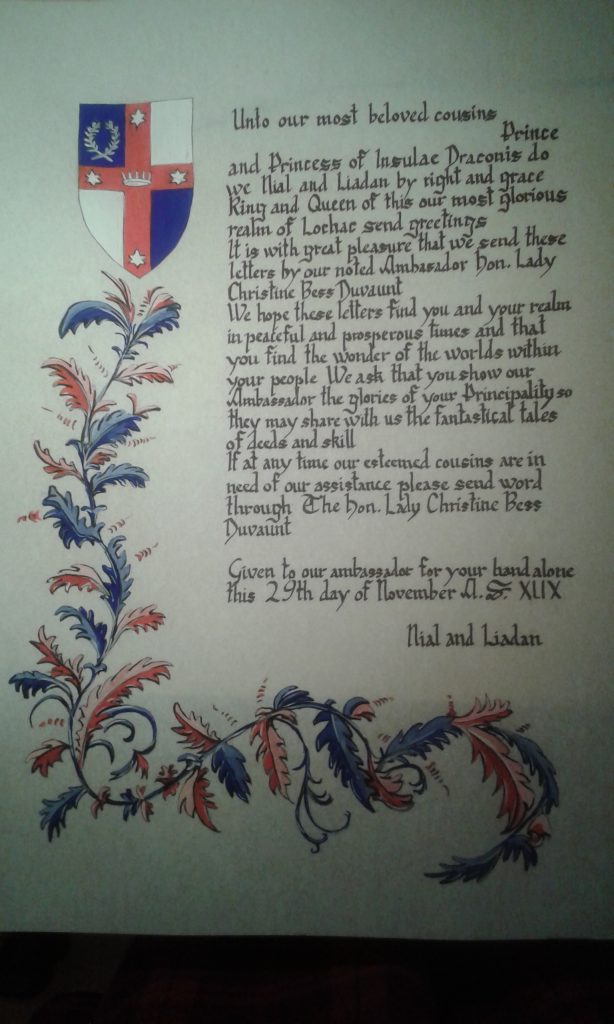 Unto our most beloved cousins
Prince
and Princess of Insulae Draconis do
we Nial and Liadan by right and grace
King and Queen of this our most glorious
realm of Lochac send greetings
It is with great pleasure that we send these
letters by our noted Ambasador Hon. Lady
Christine Bess Duvaunt
We hope these letters find you and your realm
in peaceful and prosperous times and that
you find the wonder of the worlds within
your people We ask that you show our
Ambassador the glories of your Principality so
they may share with us the fantastical tales
of deeds and skill
If at any time our esteemed cousins are in
need of our assistance please send word
through The Hon. Lady Christine Bess
Duvaunt
Given to our ambassador for your hand alone
this 29th day of November A. S. XLIX
Nial and Liadan